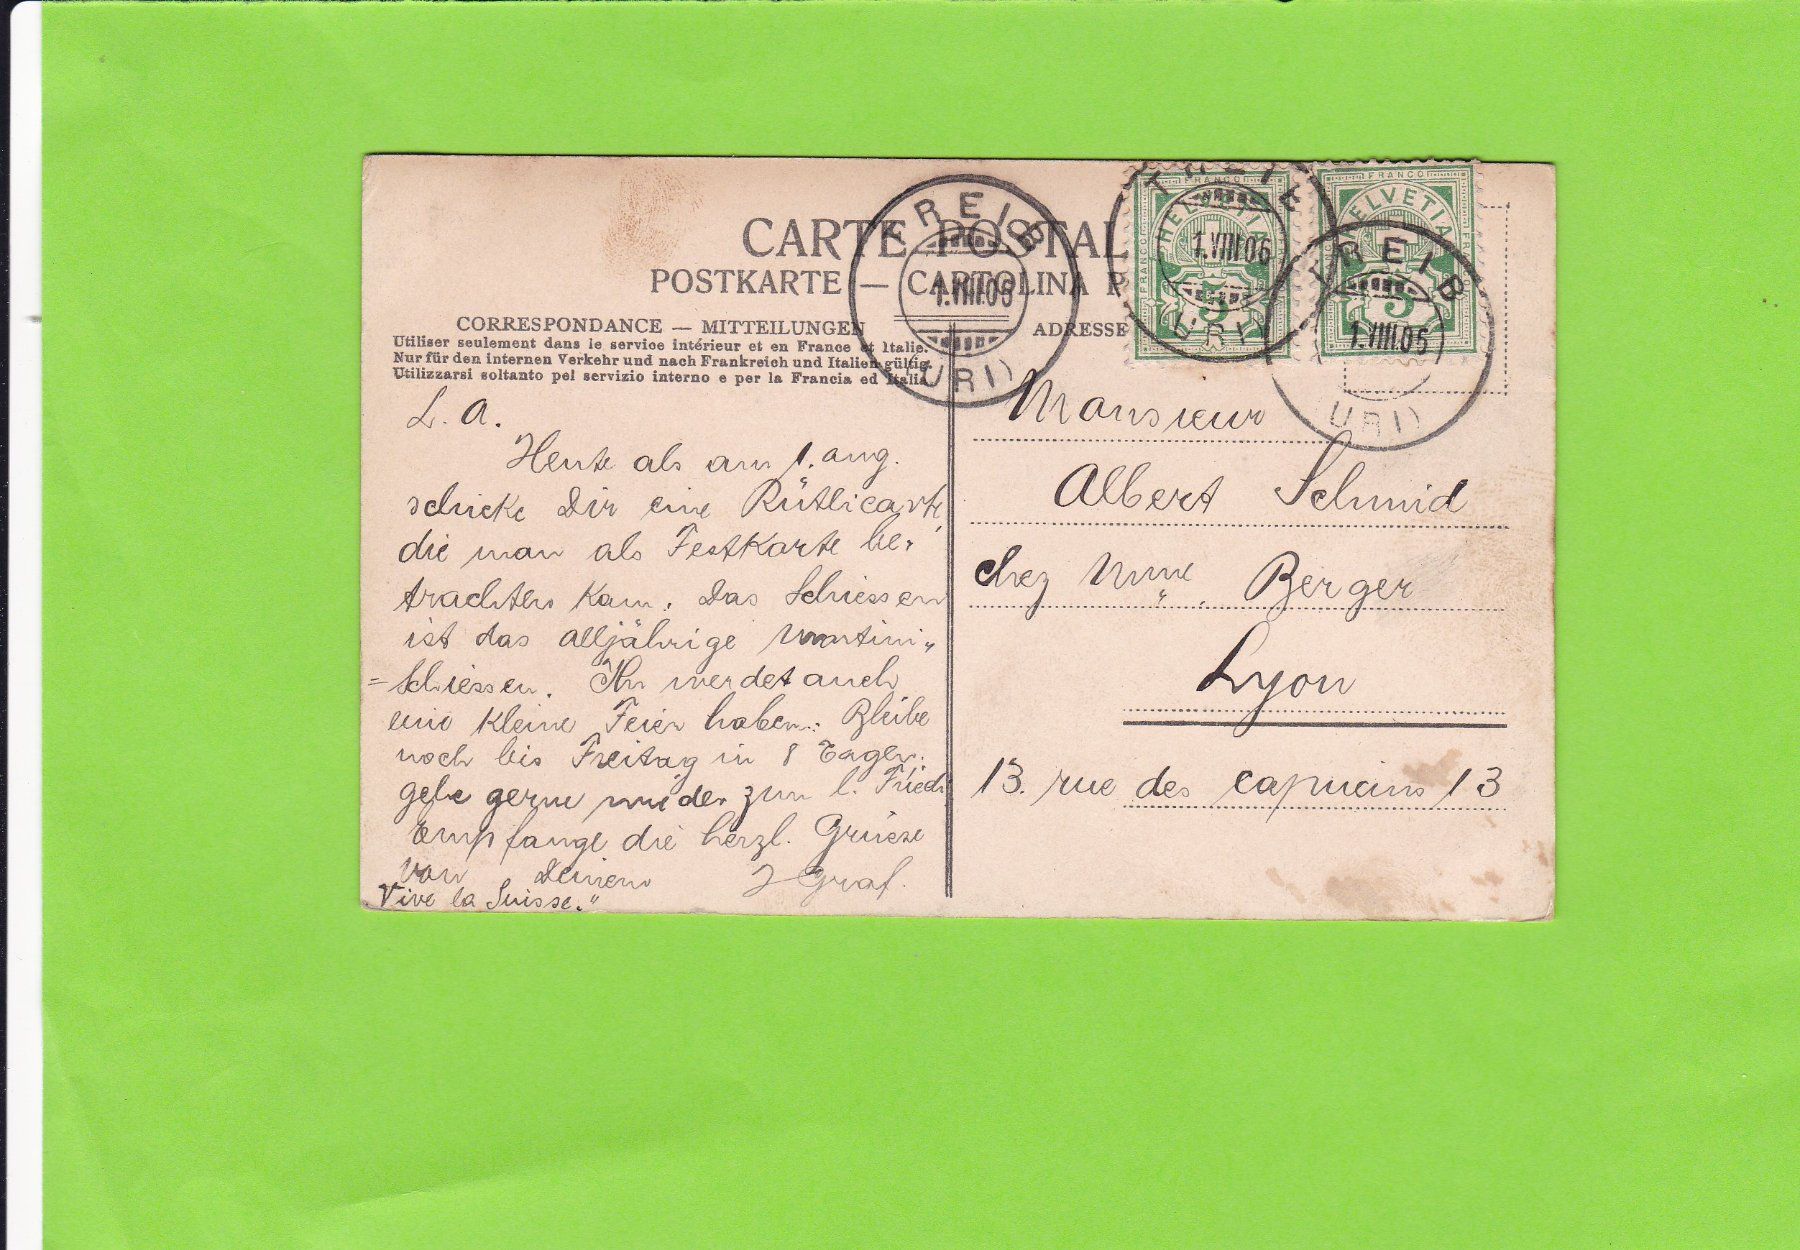 CARTE POSTAL
POSTKARTE — CARTOLINA P
CORRESPONDANCE — MITTEILUNGEN
Utiliser seulement dans le service intérieur et en France et Italie.
Nur für den internen Verkehr und nach Frankreich und Italien gültig.
Utilizzarsi soltanto pel servizio interno e per la Francia ed Italia
ADRESSE
TREIB
1.VIII.06
(URI)
TREIB
1.VIII.06
(URI)
TREIB
1.VIII.06
(URI)
FRANCO
HELVETIA
5
FRANCO
HELVETIA
5
L. A.
Heute als am 1. aug.
schicke Dir eine Rütlicarte,
die man als Festkarte be-
trachten kan. Das Schiessen
ist das alljährige Martini-
=Schiessen. Ihr werdet auch
eine kleine Feier haben. Bleibe
noch bis Freitag in 8 Tagen.
gehe gerne wieder zum l. Friedi
Empfange die herzl. Grüsse
von Deinem J Graf.
Vive la Suisse."
Monsieur
Albert Schmid
chez Mme Berger
Lyon
13. rue des capucins 13